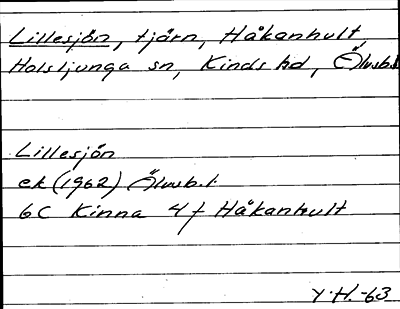 Lillesjön, tjärn, Håkanhult
Holsljunga sn, Kinds hd, Älvsb.l
Lillesjön
ek (1962) Älvsb.l.
6C Kinna 4f Håkanhult
Y.H.-63